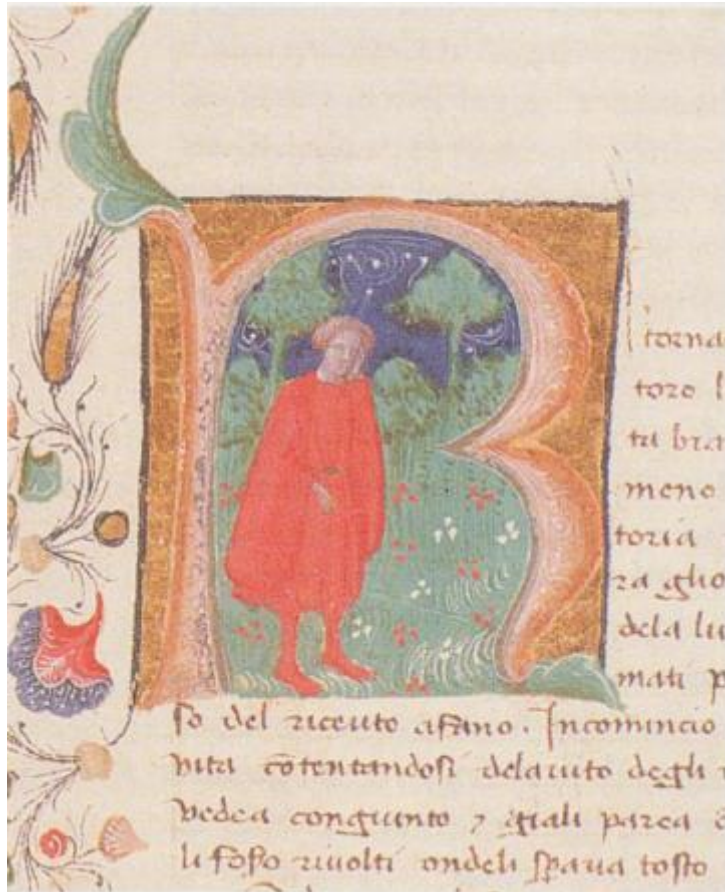 R
torna
toro l
ta bra
meno
toria
ra glio
dela lu
mati p
so del riceuto afano. Incomincio
vita cōtentandosi delauto degli
vedea congiunto ⁊ giali parea
li fosso riuolti ondeli sparia tosto